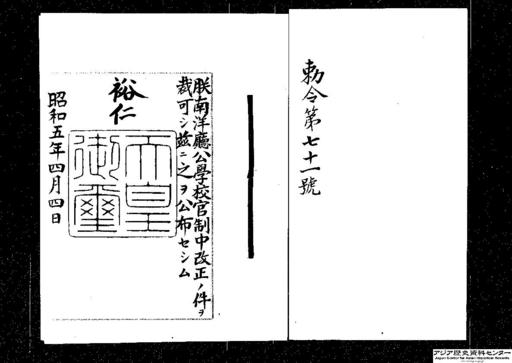 勅令第七十一號
朕南洋廳公學校官制中改正ノ件ヲ
裁可シ玆ニ之ヲ公布セシム
裕仁
天皇
御璽
昭和五年四月四日
アジア歴史資料センター
Japan Center for Asian Historical Records